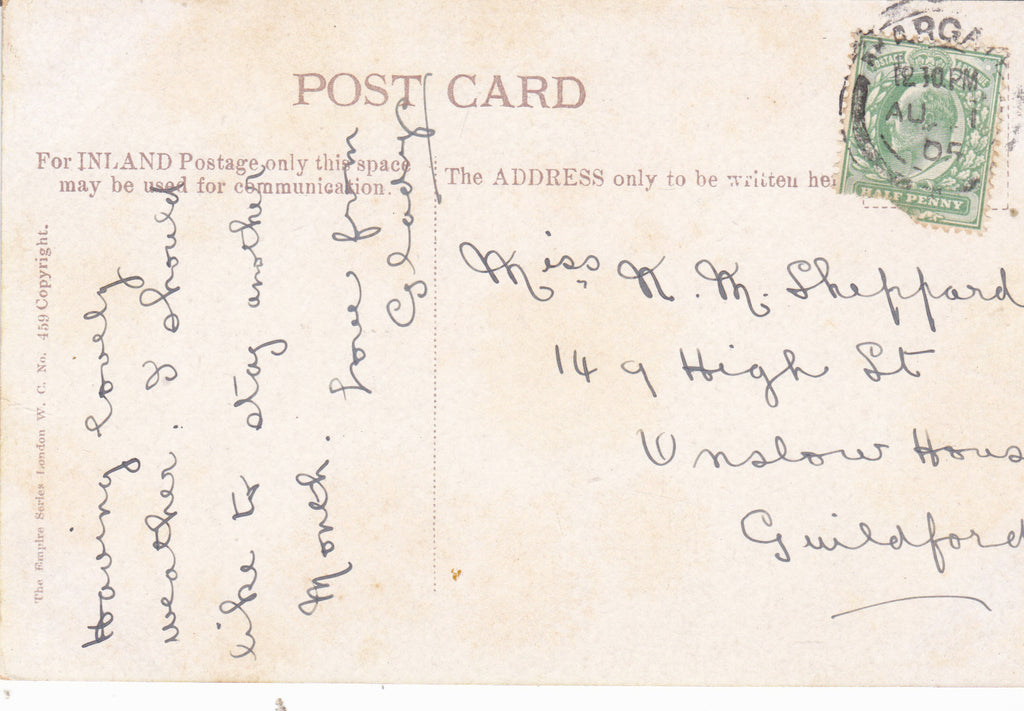 POST CARD
For INLAND Postage only this space
may be used for communication.
The ADDRESS only to be written her
The Empire Series London W. C. No. 459 Copyright.
MARGA
12 30 PM
AU
05
HALF PENNY
Having lovely
weather. I should
like to stay another
Month.
Love from
Gladys
Miss K. M. Sheppard
149 High St
Onslow Hous
Guildford